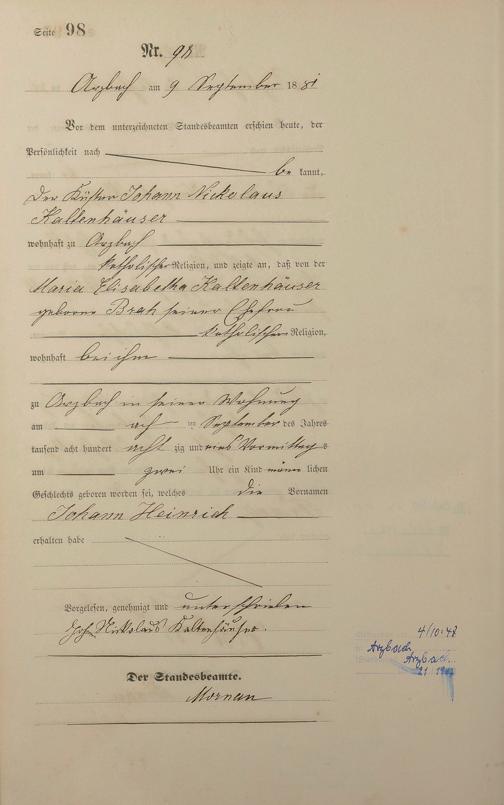 Seite 98
Nr. 98
Arzbach am 9 September 1881
Vor dem unterzeichneten Standesbeamten erschien heute, der
Persönlichkeit nach
be kannt,
Der Küster Johann Nickolaus
Kaltenhäuser
wohnhaft zu Arzbach
katholischer Religion, und zeigte an, daß von der
Maria Elisabetha Kaltenhäuser
geborne seiner Ehefrau
katholischer Religion,
wohnhaft bei ihm
zu Arzbach in seiner Wohnung
am ach ten September des Jahres
tausend acht hundert acht zig und eins Vormittag s
um zwei Uhr ein Kind männ lichen
Geschlechts geboren worden sei, welches die Vornamen
Johann Heinrich
erhalten habe
Vorgelesen, genehmigt und unterschrieben
Joh. Nickolaus Kaltenhäuser.
Der Standesbeamte.
4/10.48
Arzbach
Arzbach